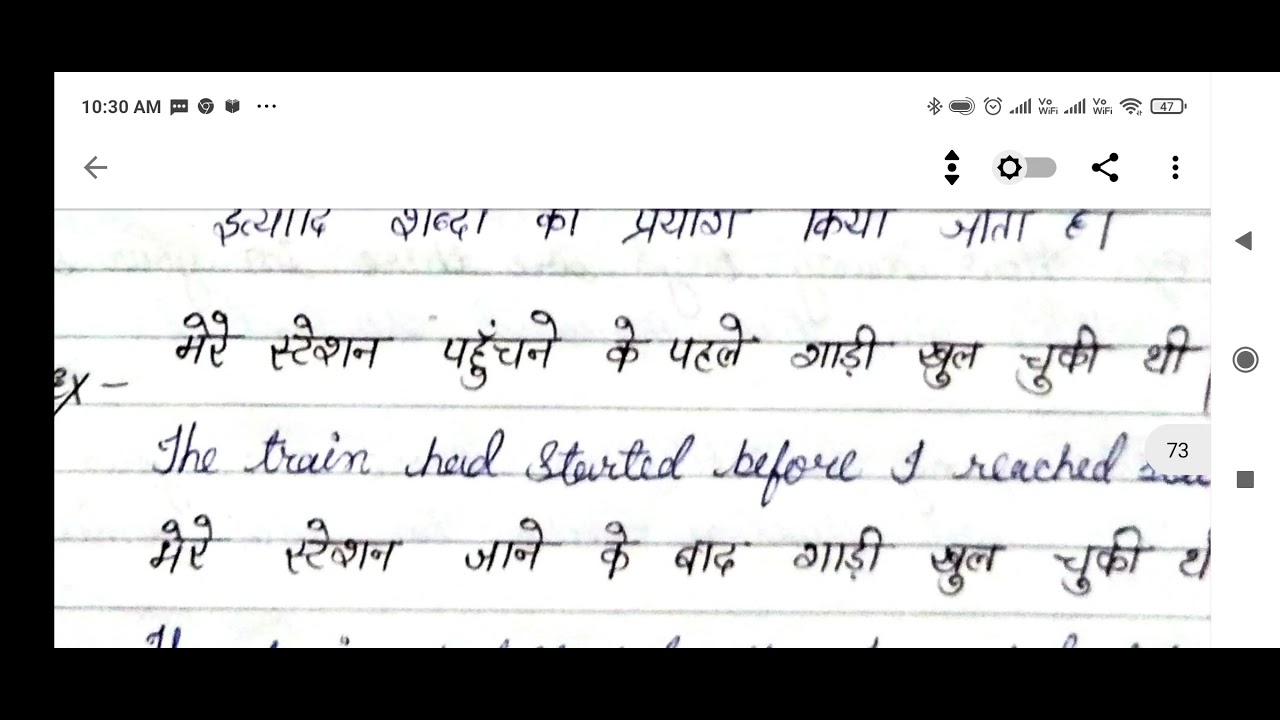 10:30 AM
Vo WiFi Vo WiFi 47
इत्यादि शब्दों का प्रयोग किया जाता है।
मेरे स्टेशन पहुँचने के पहले गाड़ी खुल चुकी थी।
Ex -
The train had started before I reached
73
मेरे स्टेशन जाने के बाद गाड़ी खुल चुकी